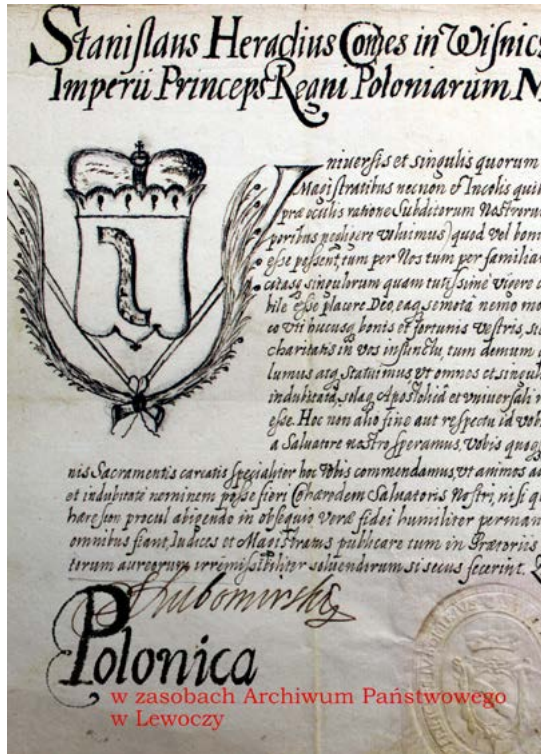 Staniſlaus Heraclius Comes in Wiſnicz
Imperii Princeps Regni Poloniarum M
niverſis et singulis quorum
Magiſtratibus necnon et Incolis quib
præ oculis ratione Subditorum Noſtroru
poribus negligere voluimus) quod vel bon
eſſe poſſent, tum per Nos tum per familiar
singulorum quam tutiſsimè vigere
bile eſſe placere Deo, eaq semotâ nemo mo
co vti hucusq bonis et fortunis veſtris, si
charitatis in vos inſtinctu, tum demum
lumus atq Statuimus vt omnes et singul
indubitatâ, solaq Apoſtolicâ et vniverſali
eſſe. Hoc non alio fine aut reſpectu id vob
a Salvatore noſtro ſperamus, vobis quoq
nis Sacramentis ſpecialiter hoc Vobis commendamus, vt animos
et indubitatè neminem poſſe fieri Cohæredem Salvatoris Noſtri, niſi
hæreſion procul abigendo in obſequio veræ fidei humiliter perman
omnibus fiant, Iudices et Magiſtratus publicare tum in Prætoriis
aureorum irremiſsibiliter soluendorum si secus fecerint.
SLubomirski
Polonica
w zasobach Archiwum Państwowego
w Lewoczy